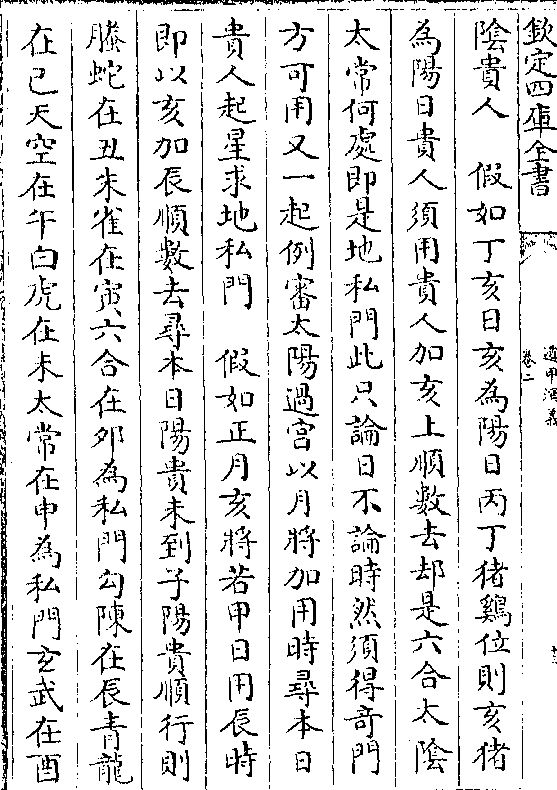 欽定四庫全書
遁甲演義
卷二
十二
陰貴人　假如丁亥日亥為陽日丙丁猪鷄位則亥猪
為陽日貴人須用貴人加亥上順數去却是六合太陰
太常何處即是地私門此只論日不論時然須得竒門
方可用又一起例審太陽過宫以月將加用時尋本日
貴人起星求地私門　假如正月亥將若甲日用辰時
即以亥加辰順數去尋本日陽貴未到子陽貴順行則
螣蛇在丑朱雀在寅六合在夘為私門勾陳在辰青龍
在已天空在午白虎在未太常在申為私門玄武在酉